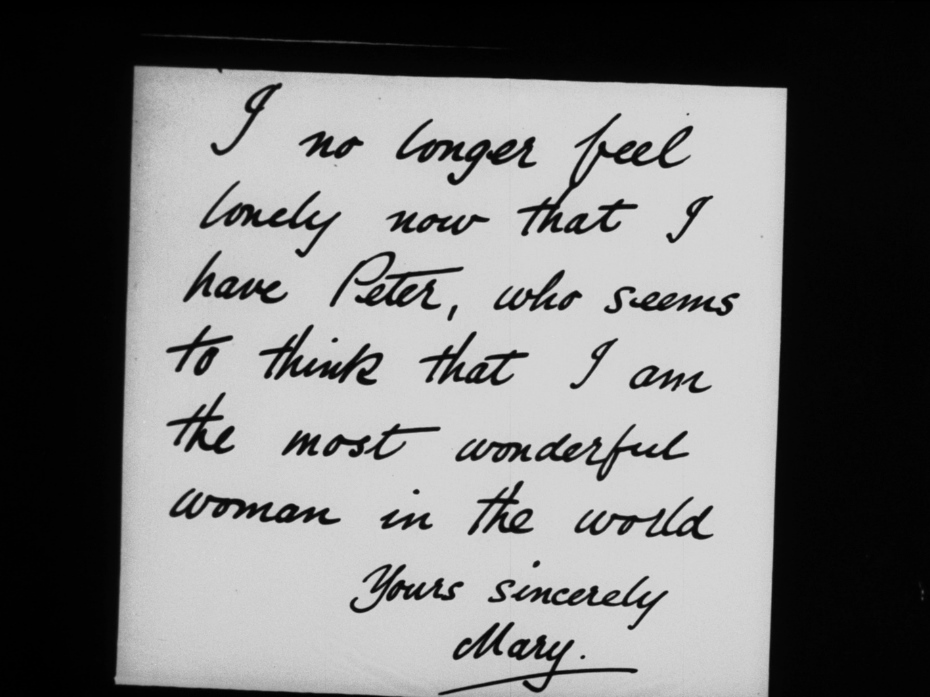 I no longer feel
lonely now that I
have Peter, who seems
to think that I am
the most wonderful
woman in the world
Yours sincerely
Mary.